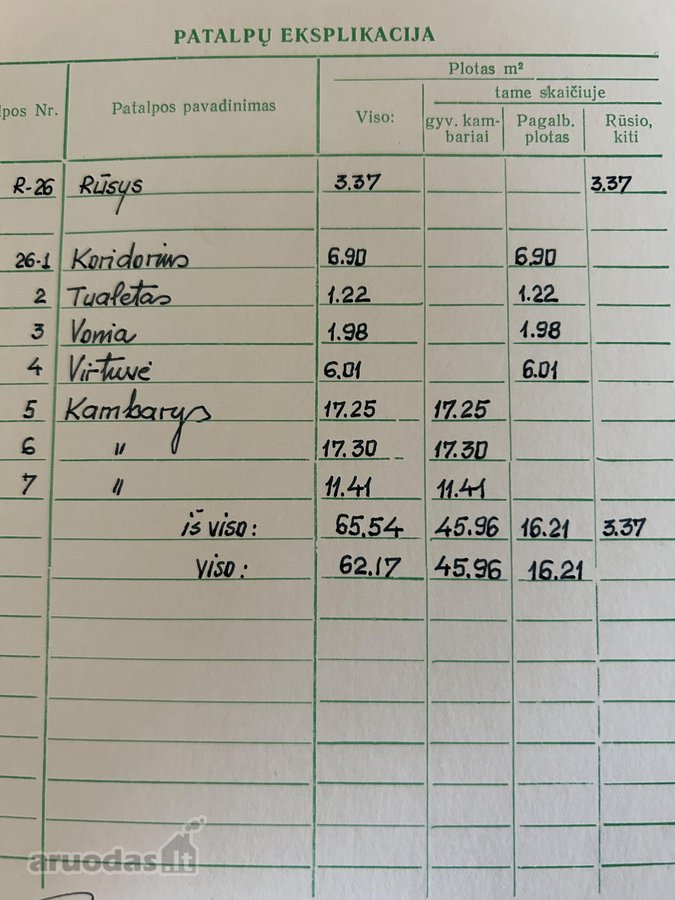 PATALPŲ EKSPLIKACIJA
Plotas m²
tame skaičiuje
lpos Nr. Patalpos pavadinimas Viso: gyv. kam-bariai Pagalb. plotas Rūsio, kiti
R-26 Rūsys 3.37 3.37
26-1 Koridorius 6.90 6.90
2 Tualetas 1.22 1.22
3 Vonia 1.98 1.98
4 Virtuvė 6.01 6.01
5 Kambarys 17.25 17.25
6 " 17.30 17.30
7 " 11.41 11.41
iš viso: 65.54 45.96 16.21 3.37
Viso: 62.17 45.96 16.21
aruodas.lt